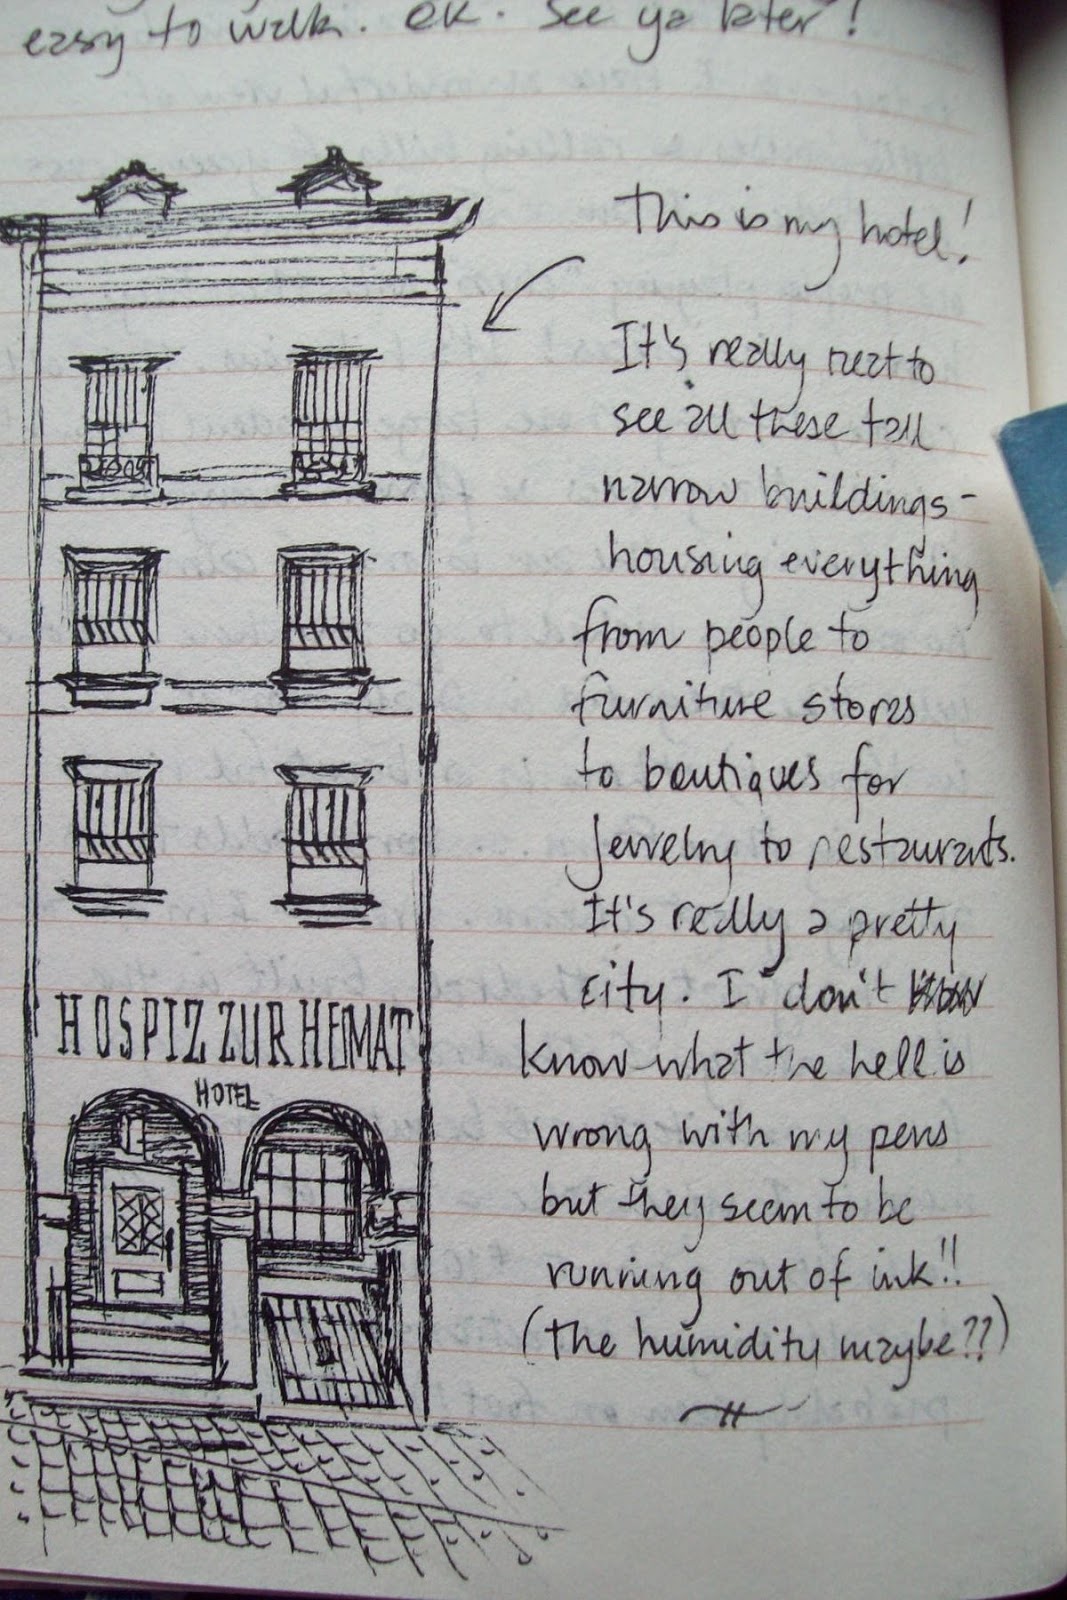 easy to walk. OK. See ya later!
This is my hotel!
It's really neat to
see all these tall
narrow buildings -
housing everything
from people to
furniture stores
to boutiques for
jewelry to restaurants.
It's really a pretty
city. I don't
know what the hell is
wrong with my pens
but they seem to be
running out of ink!!
(the humidity maybe??)
HOSPIZ ZUR HEIMAT
HOTEL